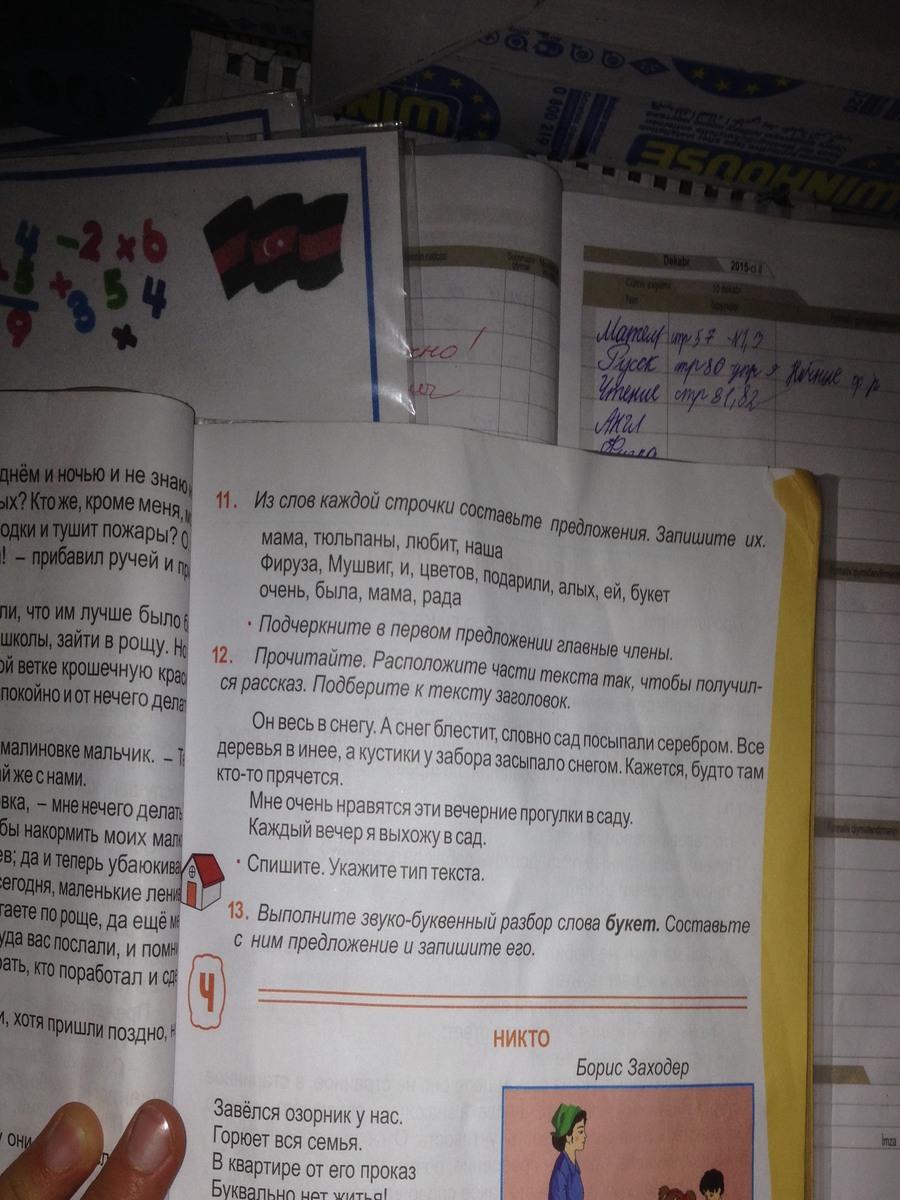 WINHOUSE
WIN
0 800 219
4 -2 x6
5 + 3 5 4
9
x
Dekabr 2015-ci il
10 dekabr
Fənn
сно!
Матем стр 57 N1,3
Русск стр80 упр
Чтение стр 81,82
Англ
днём и ночью и не знаю
ых? Кто же, кроме меня,
одки и тушит пожары? О
! – прибавил ручей и
ли, что им лучше было
школы, зайти в рощу. Но
ой ветке крошечную крас
спокойно и от нечего дела
малиновке мальчик. –
ай же с нами.
вка, – мне нечего делать
бы накормить моих мал
ев; да и теперь убаюкива
сегодня, маленькие лени
гаете по роще, да ещё
уда вас послали, и помн
рать, кто поработал и сд
и, хотя пришли поздно,
у они
11. Из слов каждой строчки составьте предложения. Запишите их.
мама, тюльпаны, любит, наша
Фируза, Мушвиг, и, цветов, подарили, алых, ей, букет
очень, была, мама, рада
• Подчеркните в первом предложении главные члены.
12. Прочитайте. Расположите части текста так, чтобы получил-
ся рассказ. Подберите к тексту заголовок.
Он весь в снегу. А снег блестит, словно сад посыпали серебром. Все
деревья в инее, а кустики у забора засыпало снегом. Кажется, будто там
кто-то прячется.
Мне очень нравятся эти вечерние прогулки в саду.
Каждый вечер я выхожу в сад.
• Спишите. Укажите тип текста.
13. Выполните звуко-буквенный разбор слова букет. Составьте
с ним предложение и запишите его.
Ч
НИКТО
Борис Заходер
Завёлся озорник у нас.
Горюет вся семья.
В квартире от его проказ
Буквально нет житья!
İmza